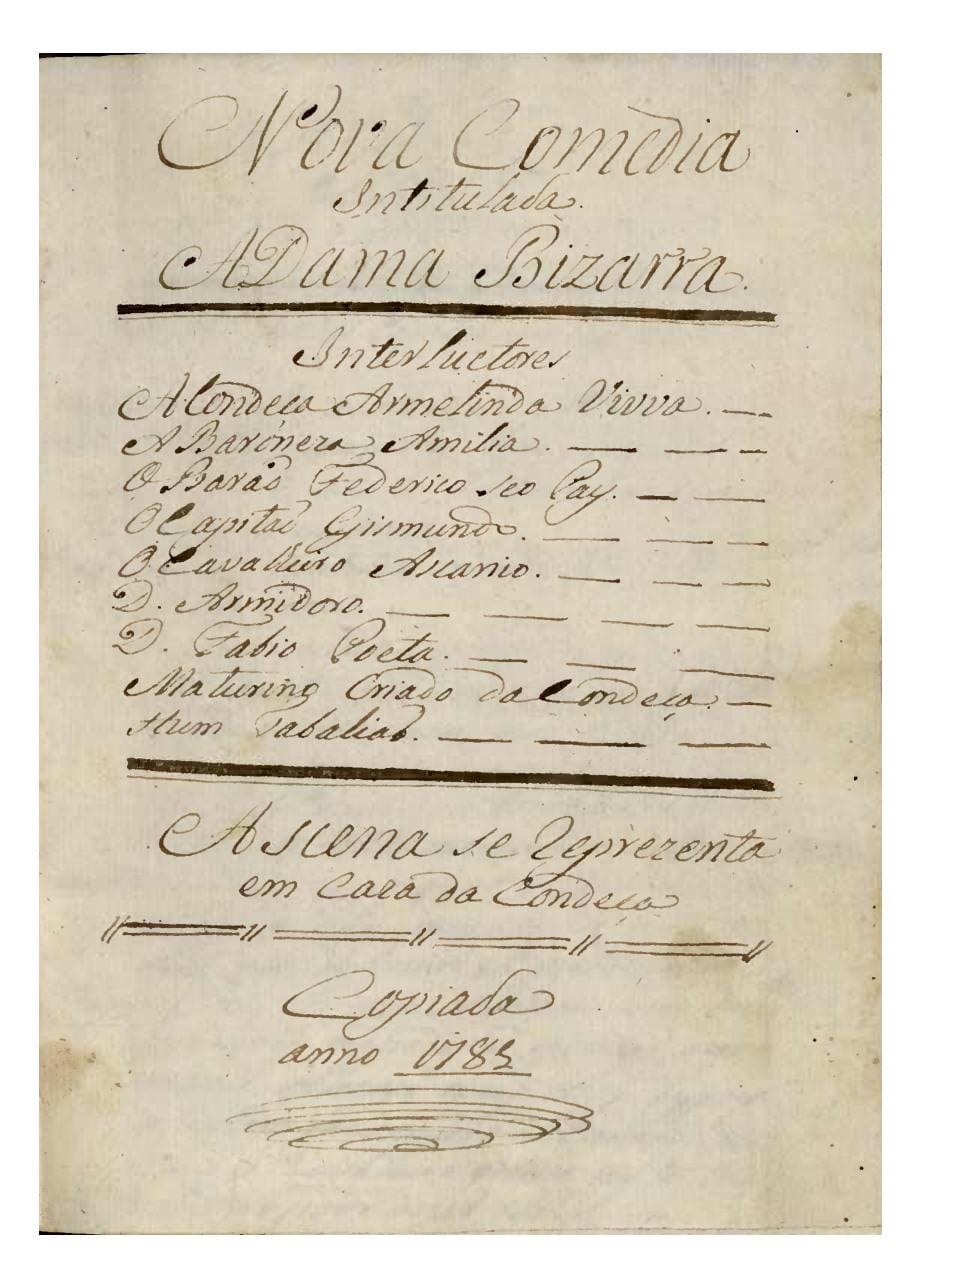 Nova Comedia
Intitulada.
A Dama Bizarra.
Interluctores
A Condeça Armelinda Viuva.
A Baroneza Amilia.
O Baraõ Federico seo Pay.
O Capitaõ Gismundo.
O Cavalleiro Ascanio.
D. Armidoro.
D. Fabio Poeta.
Maturino Criado da Condeça.
Hum Tabaliaõ.
A Scena se Reprezenta
em Caza da Condeça
Copiada
anno